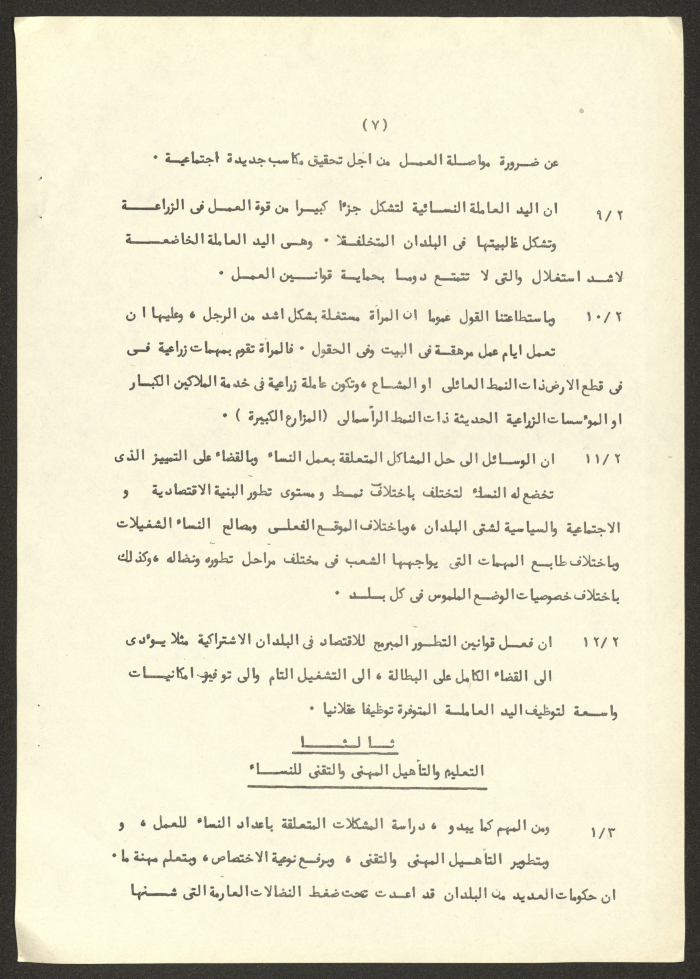 (٧)
عن ضرورة مواصلة العمل من اجل تحقيق مكاسب جديدة اجتماعية .
٩/٢ ان اليد العاملة النسائية لتشكل جزءًا كبيرا من قوة العمل فى الزراعة
وتشكل غالبيتها فى البلدان المتخلفة . وهى اليد العاملة الخاضعة
لاشد استغلال والتى لا تتمتع دوما بحماية قوانين العمل .
١٠/٢ وباستطاعتنا القول عموما ان المرأة مستغلة بشكل اشد من الرجل ، وعليها ان
تعمل ايام عمل مرهقة فى البيت وفى الحقول . فالمرأة تقوم بمهمات زراعية فى
فى قطع الارض ذات النمط العائلى او المشاع ، وتكون عاملة زراعية فى خدمة الملاكين الكبار
او المؤسسات الزراعية الحديثة ذات النمط الرأسمالى (المزارع الكبيرة ) .
١١/٢ ان الوسائل الى حل المشاكل المتعلقة بعمل النساء وبالقضاء على التمييز الذى
تخضع له النساء لتختلف باختلاف نمط ومستوى تطور البنية الاقتصادية و
الاجتماعية والسياسية لشتى البلدان ، وباختلاف الموقع الفعلى ومصالح النساء الشغيلات
وباختلاف طابع المهمات التى يواجهها الشعب فى مختلف مراحل تطوره ونضاله ، وكذلك
باختلاف خصوصيات الوضع الملموس فى كل بلد .
١٢/٢ ان فعل قوانين التطور المبرمج للاقتصاد فى البلدان الاشتراكية مثلا يؤدى
الى القضاء الكامل على البطالة ، الى التشغيل التام والى توفير امكانيات
واسعة لتوظيف اليد العاملة المتوفرة توظيفا عقلانيا .
ثالثا
التعليم والتأهيل المهنى والتقنى للنساء
١/٣ ومن المهم كما يبدو ، دراسة المشكلات المتعلقة باعداد النساء للعمل ، و
وبتطوير التأهيل المهنى والتقنى ، وبرفع نوعية الاختصاص ، وبتعلم مهنة ما .
ان حكومات العديد من البلدان قد اعدت تحت ضغط النضالات العارمة التى شنها